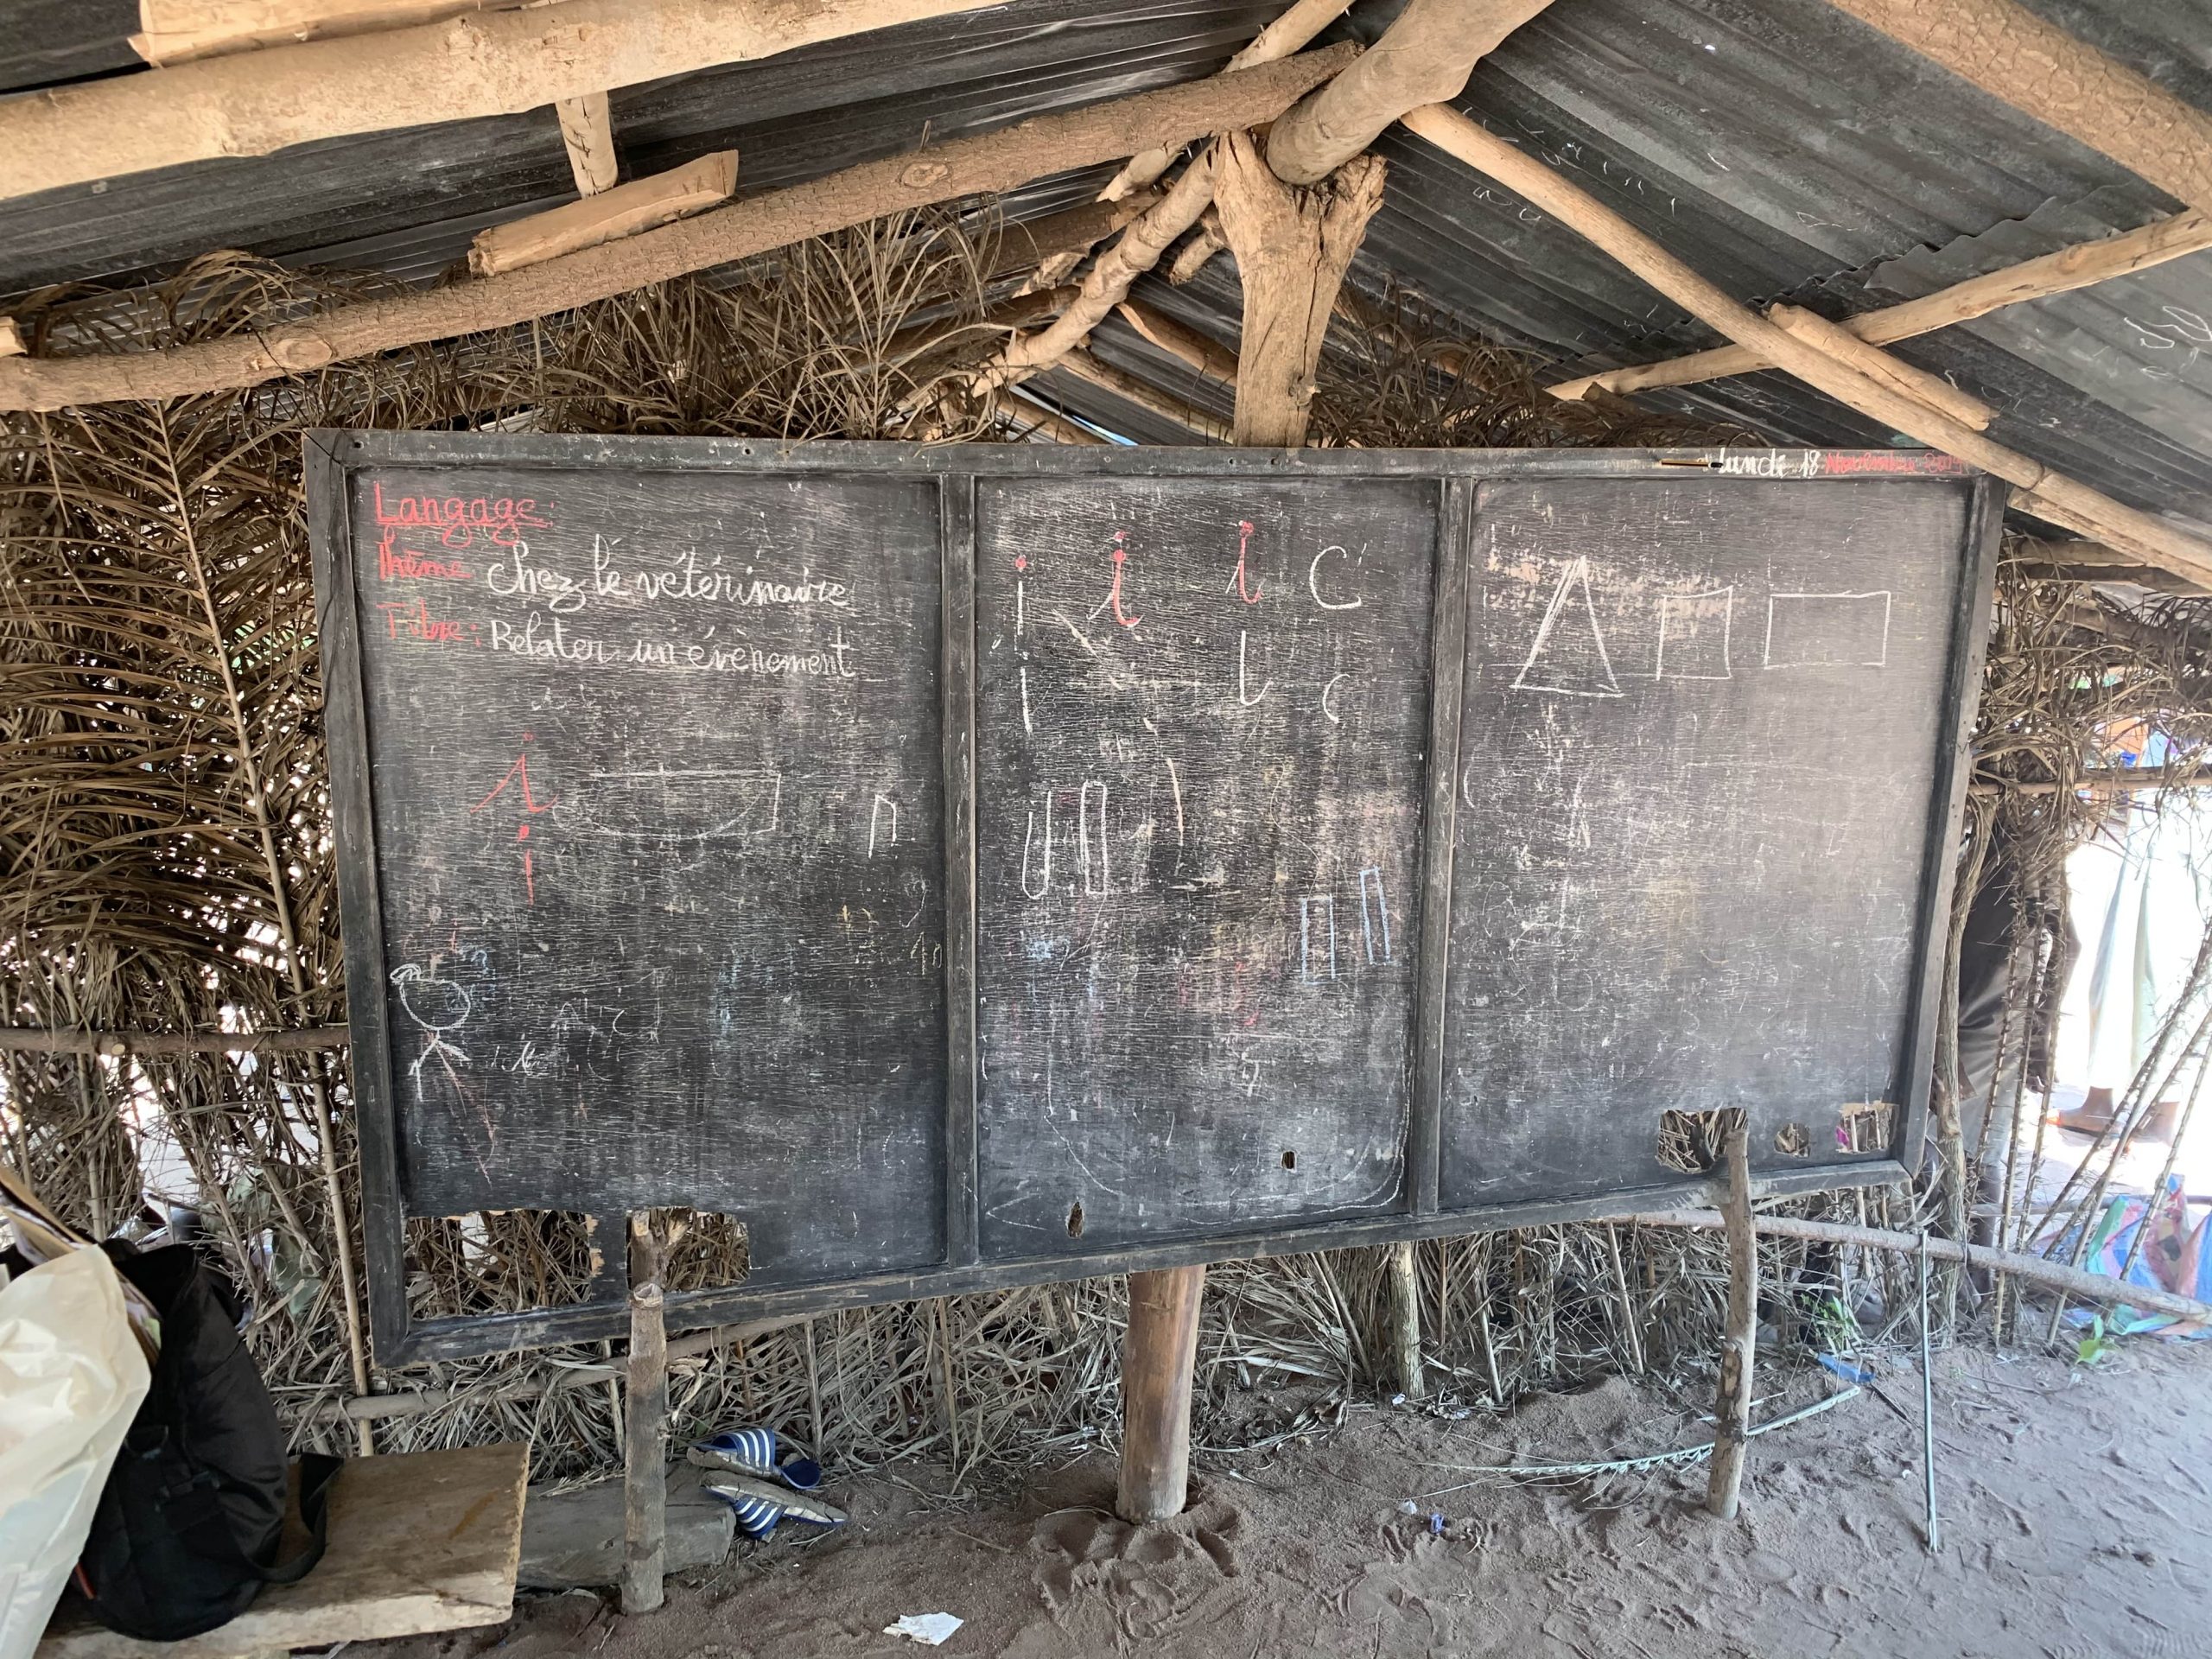 Lundi 18 Novembre
Langage:
Thème chez le vétérinaire
Titre: Relater un évènement
i i i C
l c
i
i